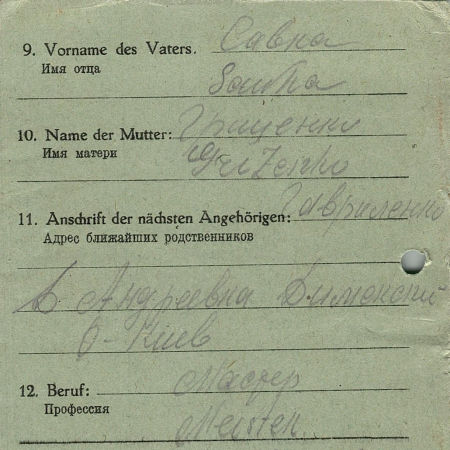 9. Vorname des Vaters. Савка
Имя отца
Sawka
10. Name der Mutter: Гриценко
Имя матери
11. Anschrift der nächsten Angehörigen: Гавриленко
Адрес ближайших родственников
Б Андреевка Дименский
О-Киев
12. Beruf: Мастер
Профессия
Meister